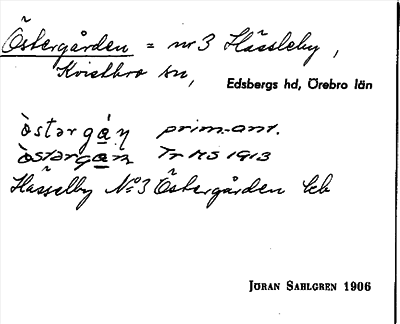 Östergården = nr 3 Hässleby,
Kvistbro sn,
Edsbergs hd, Örebro län
òstərgá̱ṇ prim.-ant.
òstərga̱ṇ Tr MS 1913
Hässelby No 3 Östergården kb
JÖRAN SAHLGREN 1906